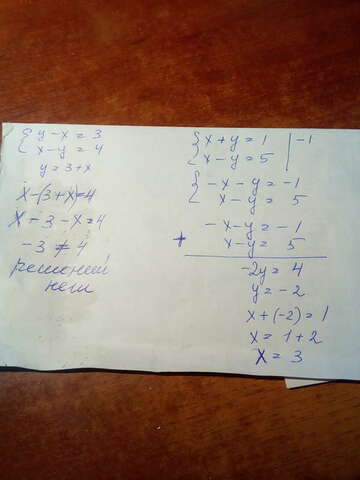 { y-x=3
x-y=4
y=3+x
x-(3+x)=4
x-3-x=4
-3≠4
решений
нет
{ x+y=1 | -1
x-y=5
{ -x-y=-1
x-y=5
-x-y=-1
+ x-y=5
-2y=4
y=-2
x+(-2)=1
x=1+2
x=3